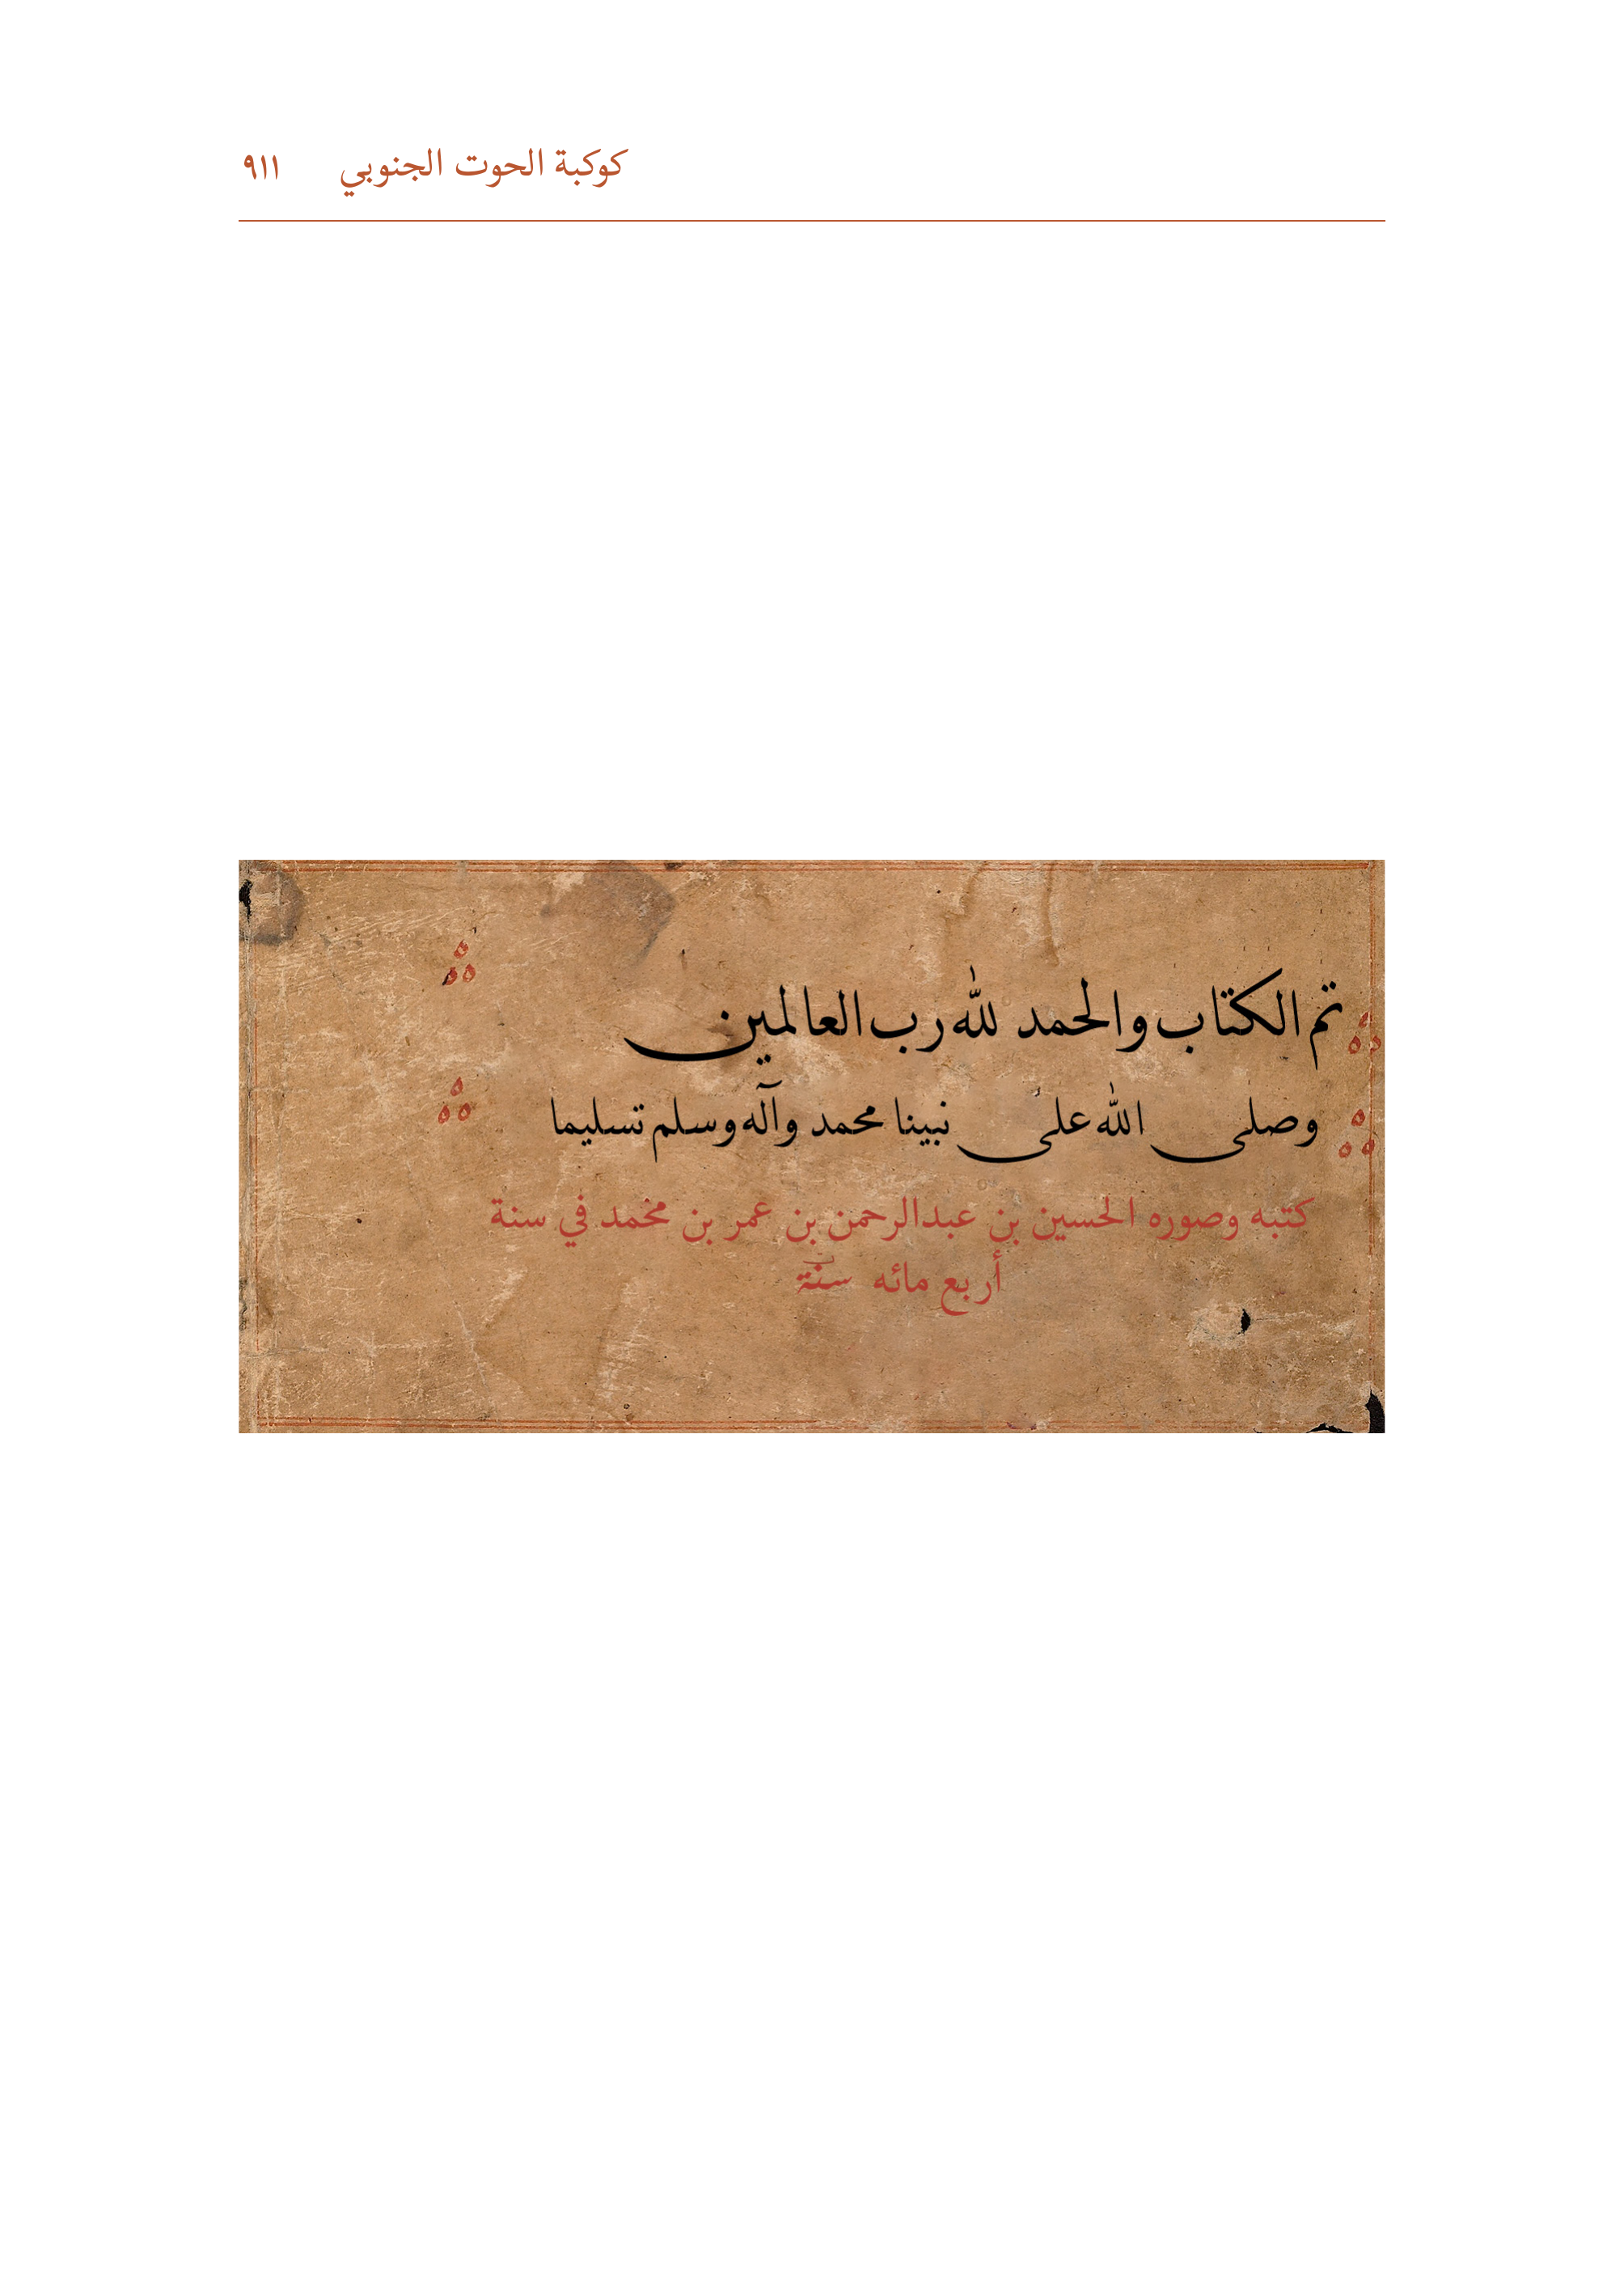 كوكبة الحوت الجنوبي ٩١١
تم الكتاب والحمد لله رب العالمين
وصلى الله على نبينا محمد وآله وسلم تسليما
كتبه وصوره الحسين بن عبدالرحمن بن عمر بن محمد في سنة
أربع مائه سنة